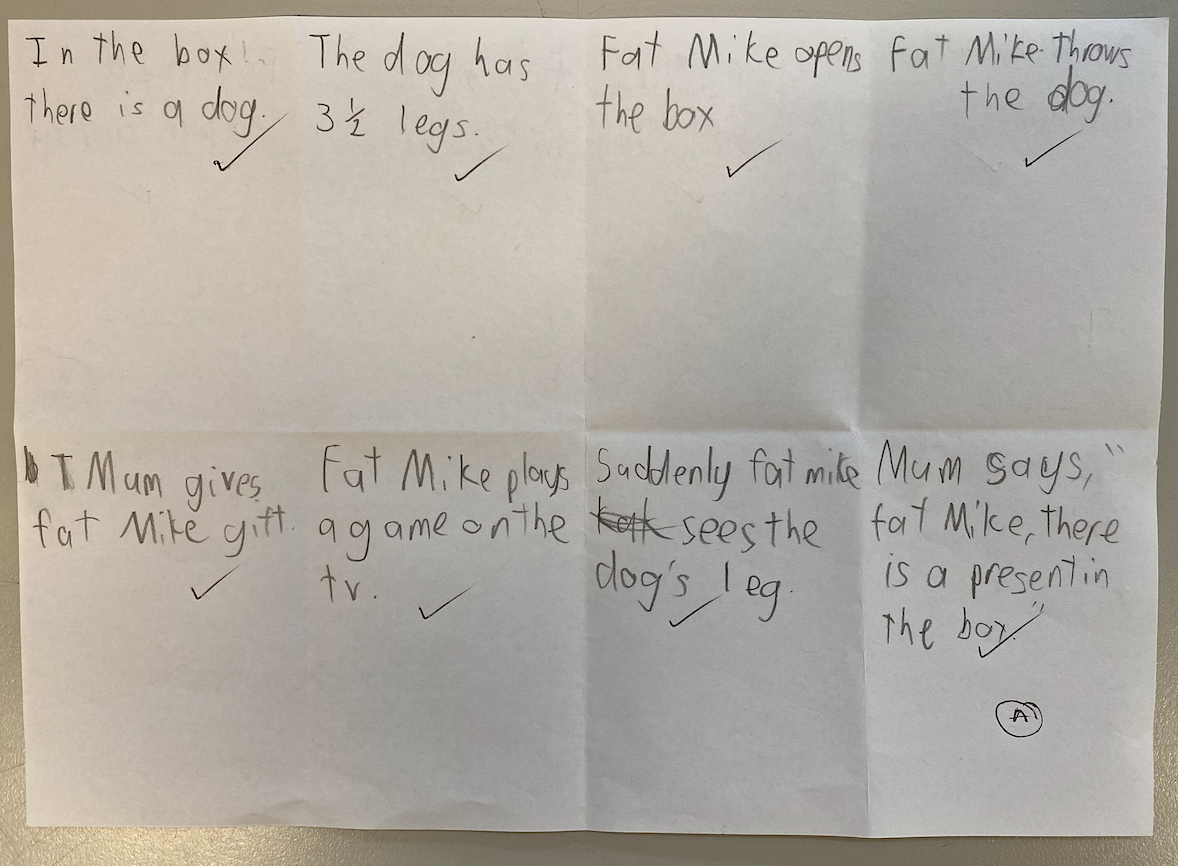 In the box
there is a dog.
The dog has
3 ½ legs.
Fat Mike opens
the box
Fat Mike Throws
the dog.
Mum gives
fat Mike gift.
Fat Mike plays
a game on the
tv.
Suddenly fat mike
sees the
dog's leg.
Mum says, "
fat Mike, there
is a present in
the box."
A